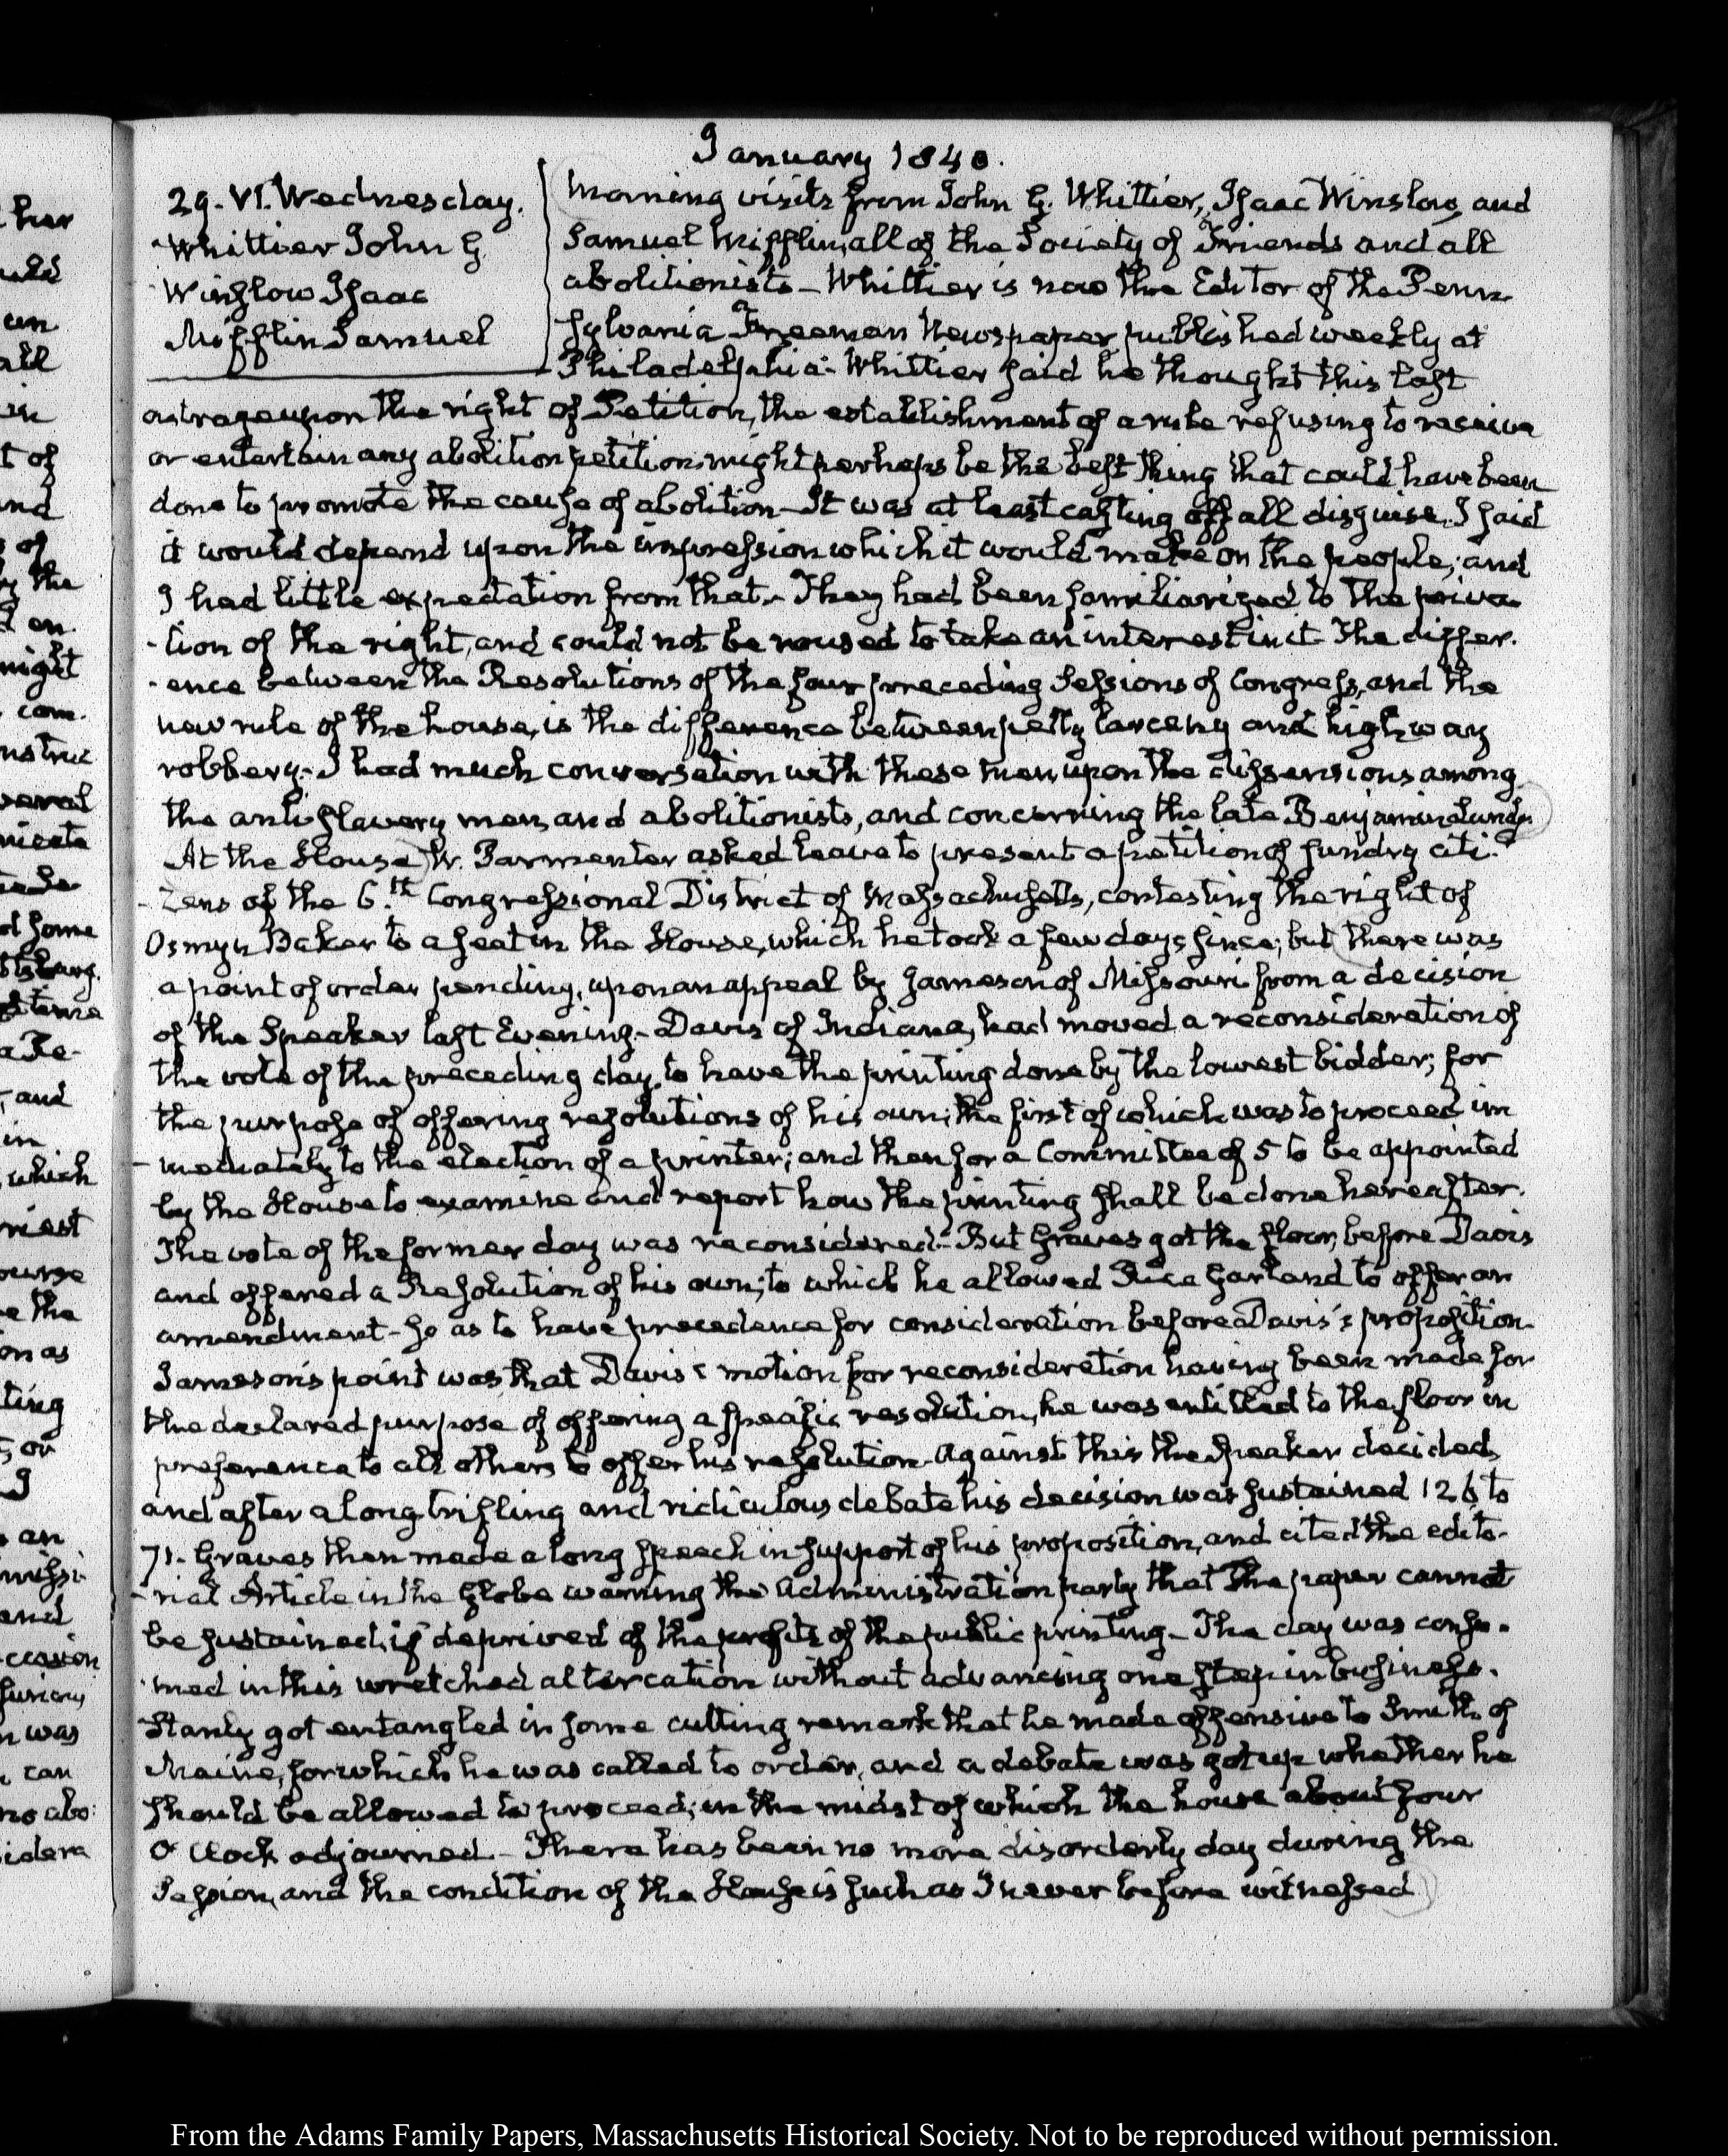 January 1840.
29. VI. Wednesday.
Whittier John G.
Winslow Isaac
Mifflin Samuel
Morning visits from John G. Whittier, Isaac Winslow, and
Samuel Mifflin, all of the Society of Friends and all
abolitionists - Whittier is now the Editor of the Penn
sylvania Freeman Newspaper published weekly at
Philadelphia - Whittier said he thought this last
outrage upon the right of Petition, the establishment of a rule refusing to receive
or entertain any abolition petition might perhaps be the best thing that could have been
done to promote the cause of abolition - It was at least casting off all disguise. I said
it would depend upon the impression which it would make on the people; and
I had little expectation from that. - They had been familiarized to the priva
-tion of the right, and could not be roused to take an interest in it. The differ.
-ence between the Resolutions of the four preceding Sessions of Congress, and the
new rule of the house, is the difference between petty larceny and highway
robbery. - I had much conversation with these men, upon the dissensions among
the anti slavery men, and abolitionists, and concerning the late Benjamin Lundy.
At the House W. Parmenter asked leave to present a petition of sundry citi-
-zens of the 6.th Congressional District of Massachusetts, contesting the right of
Osmyn Baker to a seat in the House, which he took a few days since; but there was
a point of order pending, upon an appeal by Jameson of Missouri from a decision
of the Speaker last Evening. - Davis of Indiana, had moved a reconsideration of
the vote of the preceding day, to have the printing done by the lowest bidder; for
the purpose of offering resolutions of his own; the first of which was to proceed im
-mediately to the election of a printer; and then for a Committee of 5 to be appointed
by the House to examine and report how the printing shall be done hereafter.
The vote of the former day was reconsidered. - But Graves got the floor, before Davis
and offered a Resolution of his own; to which he allowed Rice Garland to offer an
amendment - so as to have precedence for consideration before Davis's proposition.
Jameson's point was that Davis's motion for reconsideration having been made for
the declared purpose of offering a specific resolution, he was entitled to the floor in
preference to all others to offer his resolution - Against this the Speaker decided,
and after a long trifling and ridiculous debate his decision was sustained 126 to
71. Graves then made a long speech in support of his proposition, and cited the edito-
-rial Article in the Globe warning the Administration party that the paper cannot
be sustained, if deprived of the profits of the public printing - The day was consu-
med in this wretched altercation without advancing one step in business.
Stanly got entangled in some cutting remark that he made offensive to Smith of
Maine, for which he was called to order, and a debate was got up whether he
should be allowed to proceed; in the midst of which the house about four
O'Clock adjourned - There has been no more disorderly day during the
Session, and the condition of the House is such as I never before witnessed
From the Adams Family Papers, Massachusetts Historical Society. Not to be reproduced without permission.